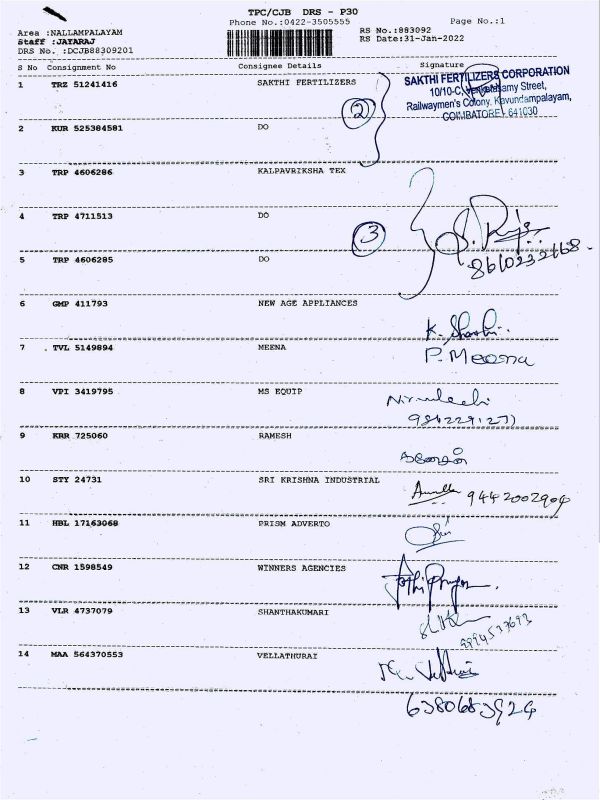 TPC/CJB DRS - P30
Phone No.:0422-3505555
Page No.:1
Area :NALLAMPALAYAM
Staff :JAYARAJ
DRS No. :DCJB88309201
RS No.:883092
RS Date:31-Jan-2022
S No Consignment No Consignee Details Signature
1 TRZ 51241416 SAKTHI FERTILIZERS
SAKTHI FERTILIZERS CORPORATION
10/10-C, Venkatasamy Street,
Railwaymen's Colony, Kavundampalayam,
COIMBATORE - 641030
2
2 KUR 525384581 DO
3 TRP 4606286 KALPAVRIKSHA TEX
4 TRP 4711513 DO
3
8610332168
5 TRP 4606285 DO
6 GMP 411793 NEW AGE APPLIANCES
7 TVL 5149894 MEENA
P. Meena
8 VPI 3419795 MS EQUIP
9 KRR 725060 RAMESH
10 STY 24731 SRI KRISHNA INDUSTRIAL
9442002904
11 HBL 17163068 PRISM ADVERTO
12 CNR 1598549 WINNERS AGENCIES
13 VLR 4737079 SHANTHAKUMARI
9994533693
14 MAA 564370553 VELLATHURAI
6380683924